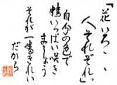 「花いろいろ
人それぞれ」
自分の色で
精いっぱい咲き
ましょう
それが一番きれい
だから